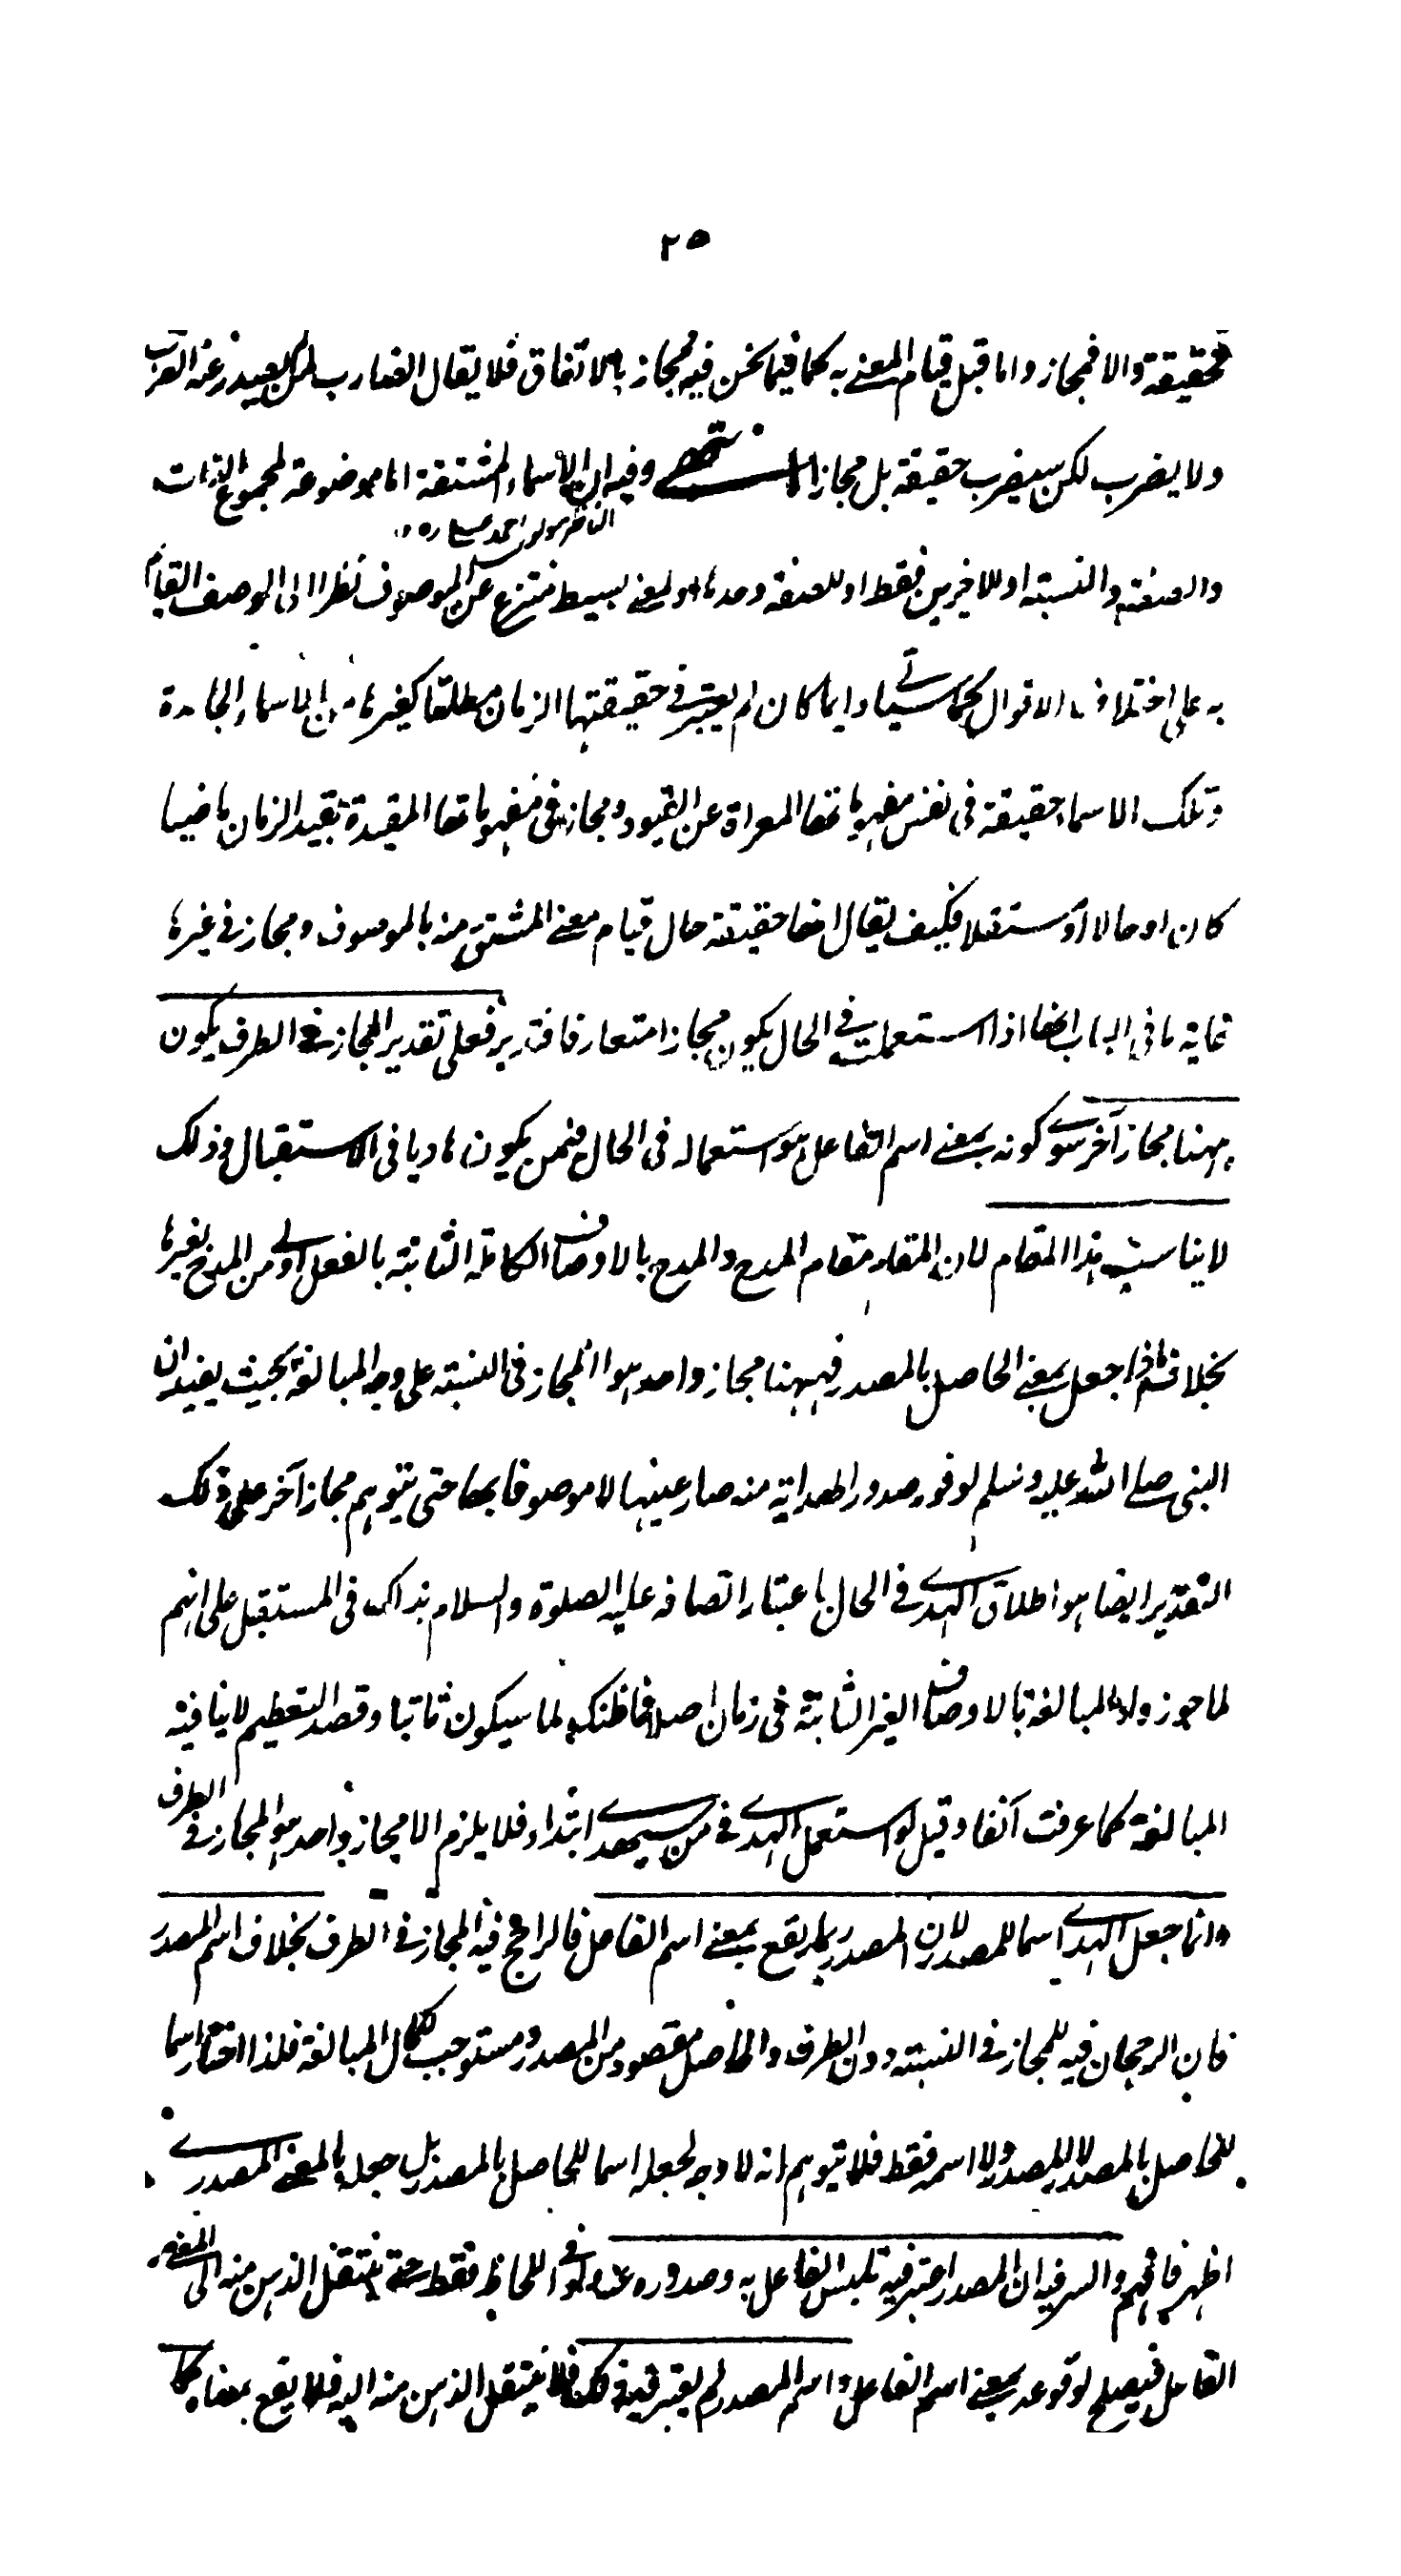 ٢٥
فحقيقة والا فمجاز واما قبل قيام المعنے به كما فيما نحن فيه فمجاز بالاتفاق فلا يقال الضارب لمن لم يصدر عنه الضرب
ولا يضرب لكن سيضرب حقيقة بل مجازا انتهے وفيه ان الاسماء المشتقة اما موضوعة لمجموع الذات
والصفة والنسبة او للاخيرين فقط او للصفة وحدها او لمعنے بسيط منتزع عن الموصوف نظرا الى الوصف القائم
به على اختلاف الاقوال كما سياتے وايا ما كان لم يعتبر فے حقيقتها الزمان مطلقا كغيرها من الاسماء الجامدة
وتلك الاسماء حقيقة فى نفس مفهوماتها المعراة عن القيود ومجاز فى مفهوماتها المقيدة بقيد الزمان ماضيا
كان او حالا او مستقبلا فكيف يقال انها حقيقة حال قيام معنے المشتق منه بالموصوف ومجاز فے غيرها
غاية ما فى الباب انها اذا استعملت فے الحال يكون مجازا متعارفا فتدبر فعلى تقدير المجاز فے الطرف يكون
ههنا مجاز آخر سوے كونه بمعنے اسم الفاعل هو استعماله فى الحال فيمن يكون هاديا فى الاستقبال وذلك
لا يناسب هذا المقام لان المقام مقام المدح والمدح بالاوصاف الكاملة الثابتة بالفعل اولے من المدح بغيرها
بخلاف ما اذا جعل بمعنے الحاصل بالمصدر فههنا مجاز واحد هو المجاز فى النسبة على وجه المبالغة بحيث يفيد ان
النبى صلے الله عليه وسلم لوفور صدور الهداية منه صار عينها لا موصوفا بها حتى يتوهم مجاز آخر على ذلك
التقدير ايضا هو اطلاق الهدے فے الحال باعتبار اتصافه عليه الصلوة والسلام بذاك فى المستقبل على انهم
لما جوزوا المبالغة بالاوصاف الغير الثابتة فى زمان اصلا فما ظنك بما سيكون ثابتا وقصد التعظيم لا ينافيه
المبالغة كما عرفت آنفا وقيل لو استعمل الهدے فے من سيهدے ابتداء فلا يلزم الا مجاز واحد هو المجاز فے الطرف
وانما جعل الهدے اسما للمصدر لان المصدر ربما يقع بمعنے اسم الفاعل فالراجح فيه المجاز فے الطرف بخلاف اسم المصدر
فان الرجحان فيه للمجاز فے النسبة دون الطرف والحاصل مقصود من المصدر ومستوجب لكمال المبالغة فلذا اختار اسما
للحاصل بالمصدر لا للمصدر ولا اسمه فقط فلا يتوهم انه لا وجه لجعله اسما للحاصل بالمصدر بل جعله بالمعنے المصدرے
اظهر فافهم والسر فيه ان المصدر اعتبر فيه تلبس الفاعل به وصدوره عنه ولو فے اللحاظ فقط حتے ينتقل الذهن منه الى المعنے
الفاعل فيصلح لوقوعه بمعنے اسم الفاعل واسم المصدر لم يعتبر فيه ذلك فلا ينتقل الذهن منه اليه فلا يقع بمعناه كما